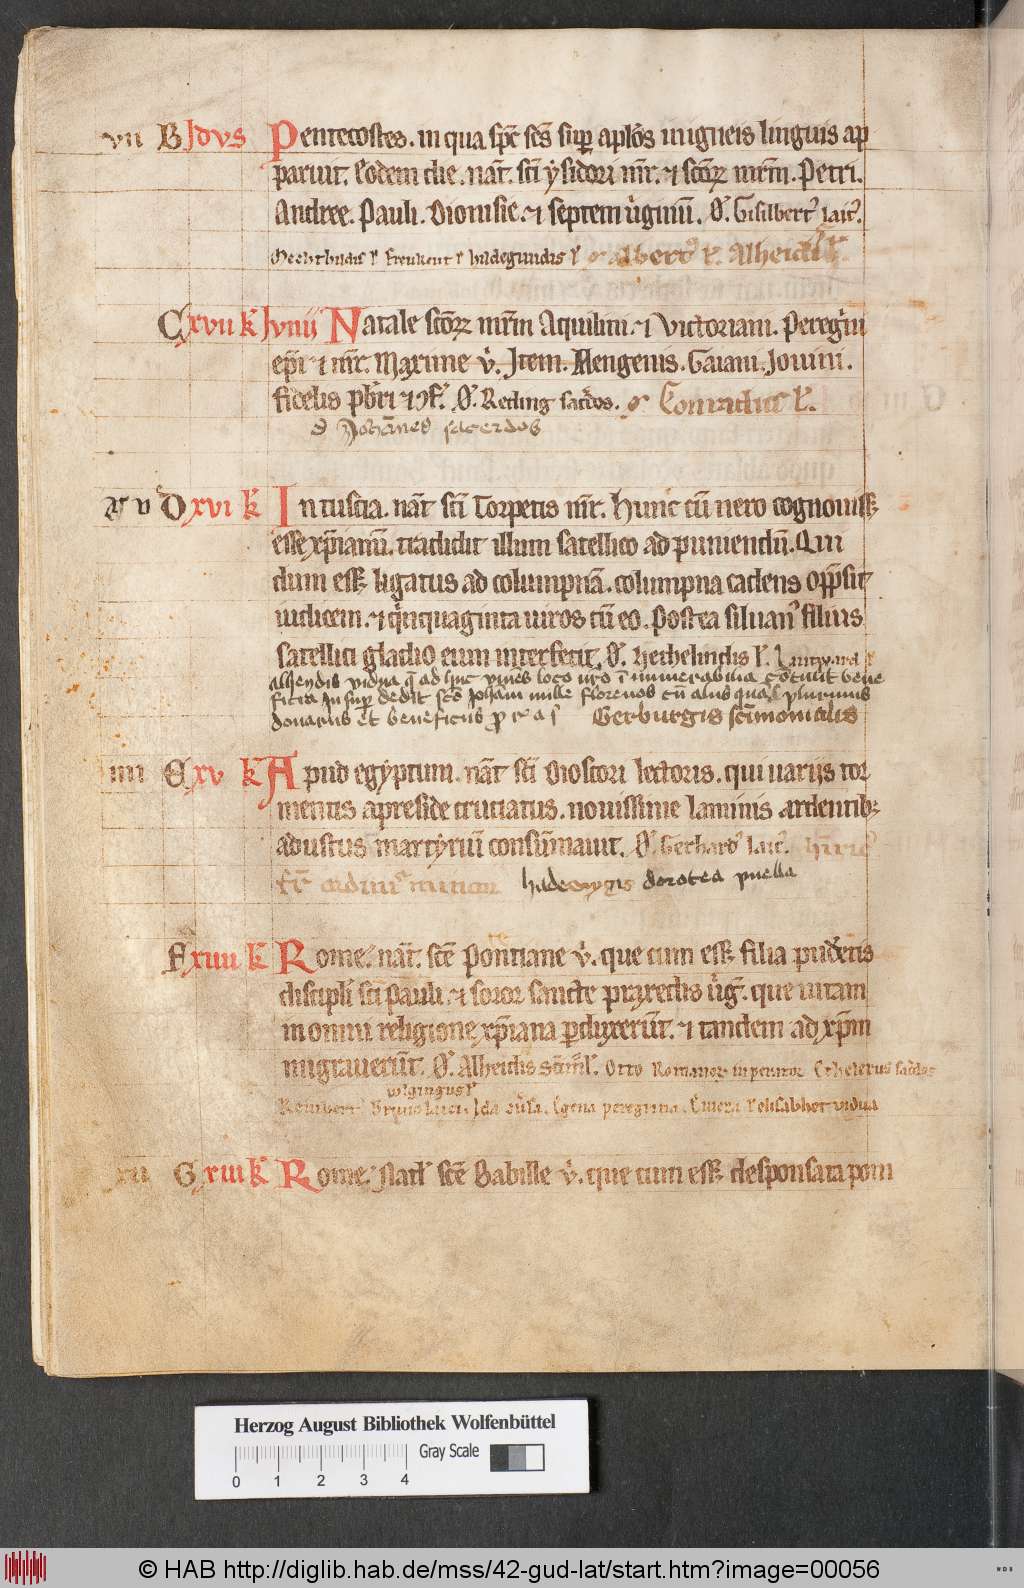 vii B Jdvs Pentecostes. in qua spc scs sup aplos in igneis linguis ap
paruit. Eodem die. nat. sci ysidori mr. et scorz mrm. Petri.
Andree. Pauli. Dionisie. et septem uginu. O. Gisilbert laic.
Mechthildis hildegundis Albert Alheidis
C xvii k Jvnii Natale scorz mrm Aquilini. et Victoriani. Peregrini
epi et mr. Maxime v. Item. Gaiani. Jovini.
fidelis pbri et of. O. Reding sacdos. Conradus
Johannes sacerdos
D xvi k In tuscia. nat sci Torpetis mr. Hunc cu nero cognouiss
esse xpianu. tradidit illum satellico ad puniendu. Qui
dum ess ligatus ad columpna. columpna cadens oppsit
iudicem. et qinquaginta uiros cu eo. Postea siluan filius
satellici gladio eum interfecit. O. hethelindis
alheydis vidua q ad huc vives loco nro innumerabilia cotulit bene
ficia Insup dedit sco Johani mille florenos cu aliis plurimis
donariis et beneficiis Gerburgis scimonialis
iiii E xv k Apud egyptum. nat sci Dioscori lectoris. qui uariis tor
mentis apreside cruciatus. nouissime laminis ardentib;
adustus martyriu consumauit. O. Gerhard laic.
dorotea puella
F xiiii k Rome. nat. sce Potentiane v. que cum ess filia pudetis
discipli sci Pauli. et soror sancte praxedis ug. que uitam
in omni religione xpiana pduxerut. et tandem ad xpm
migrauerut. O. Alheidis scimol. Otto Romanor imperator sacdos
Reinbert Bruno laici. Ida peregrina. elisabhet vidua
xii G xiii k Rome. Natl sce Babille v. que cum ess desponsata pom
Herzog August Bibliothek Wolfenbüttel
Gray Scale
0 1 2 3 4
© HAB http://diglib.hab.de/mss/42-gud-lat/start.htm?image=00056